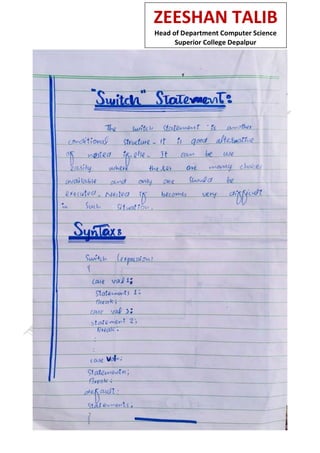 ZEESHAN TALIB
Head of Department Computer Science
Superior College Depalpur
"Switch" Statement:
The switch statement is another
conditional structure. it is good alternative
of nested if else. It can be use
easily where there are many choices
available and only one should be
executed. nested if becomes very difficult
in such situation.
Syntax:
Switch (expression)
{
case val 1:
Statements 1;
Break;
case val 3:
statement 2;
Break.
:
:
case :
Statements;
Break;
default:
statements.
}